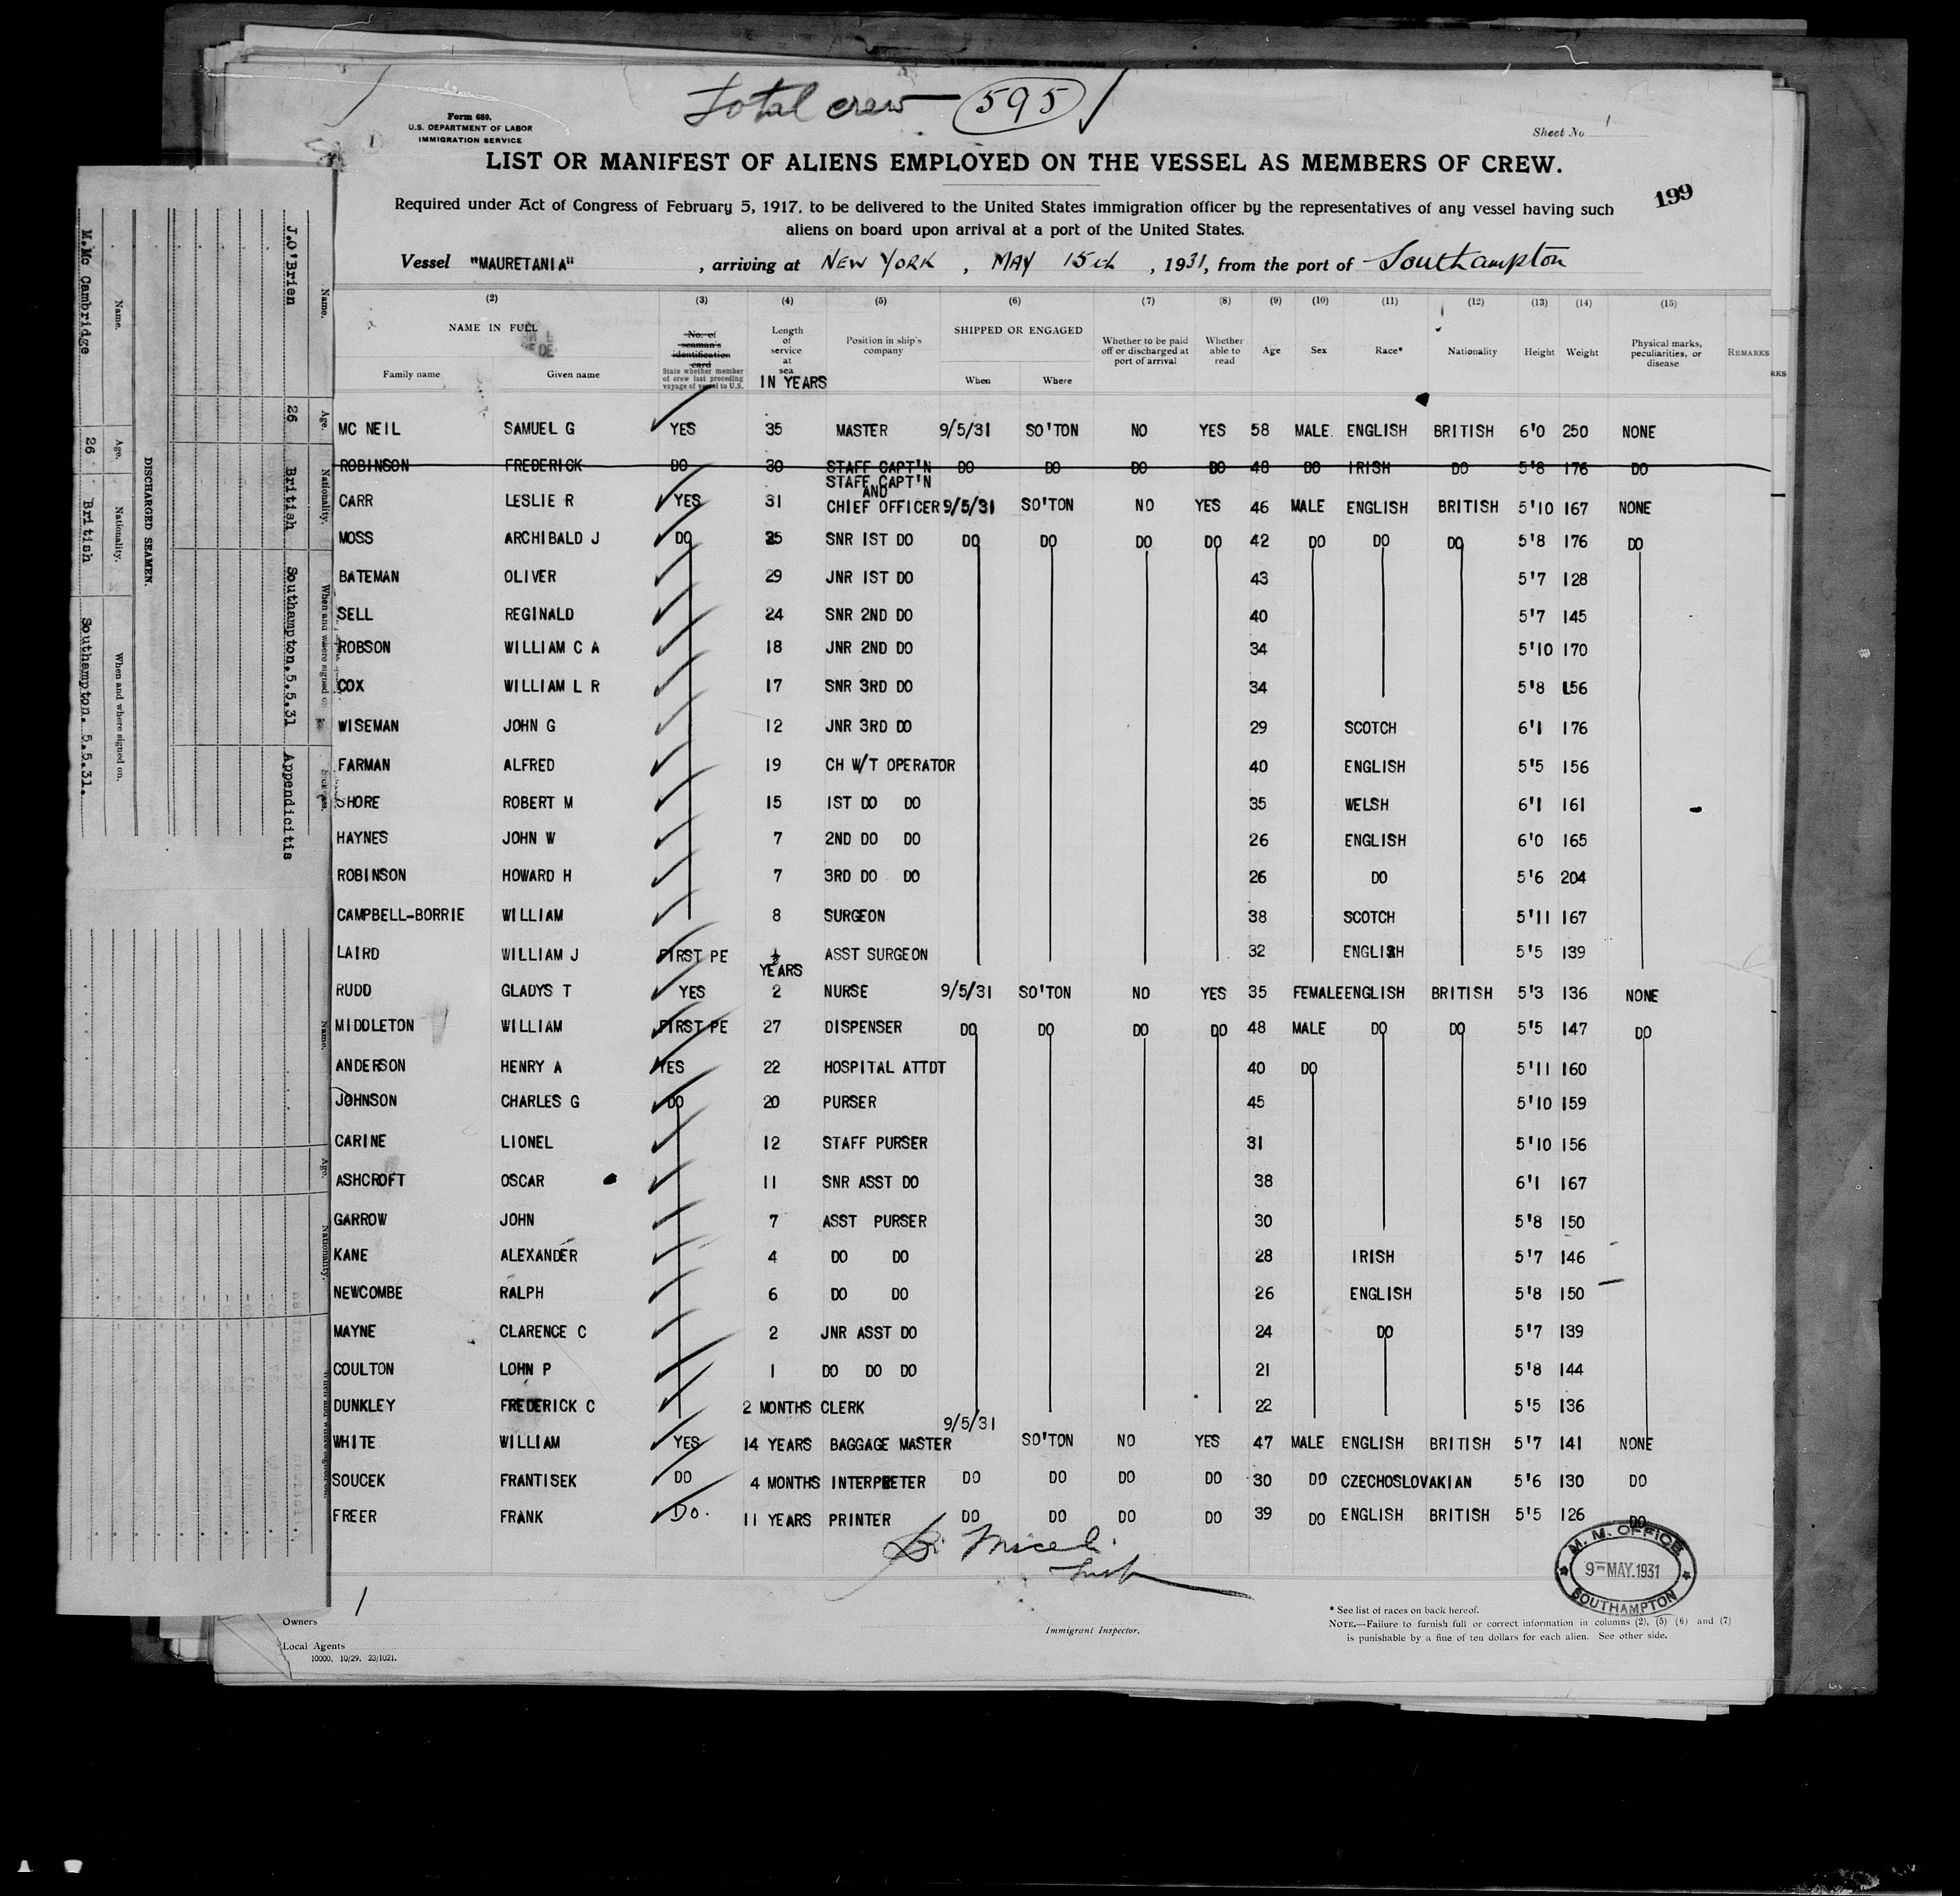 Total crew 595
Form 680.
U.S. DEPARTMENT OF LABOR
IMMIGRATION SERVICE
1
Sheet No 1
LIST OR MANIFEST OF ALIENS EMPLOYED ON THE VESSEL AS MEMBERS OF CREW.
199
Required under Act of Congress of February 5, 1917, to be delivered to the United States immigration officer by the representatives of any vessel having such
aliens on board upon arrival at a port of the United States.
Vessel "MAURETANIA", arriving at NEW YORK, MAY 15th, 1931, from the port of Southampton
(2) (3) (4) (5) (6) (7) (8) (9) (10) (11) (12) (13) (14) (15)
NAME IN FULL
Family name Given name
No. of seaman's identification card
State whether member of crew last preceding voyage of vessel to U.S.
Length of service at sea
IN YEARS
Position in ship's company
SHIPPED OR ENGAGED
When Where
Whether to be paid off or discharged at port of arrival
Whether able to read
Age Sex Race* Nationality Height Weight
Physical marks, peculiarities, or disease
REMARKS
MC NEIL SAMUEL G YES 35 MASTER 9/5/31 SO'TON NO YES 58 MALE. ENGLISH BRITISH 6'0 250 NONE
ROBINSON FREDERICK DO 30 STAFF CAPT'N DO DO DO DO 48 DO IRISH DO 5'8 176 DO
STAFF CAPT'N
AND
CARR LESLIE R YES 31 CHIEF OFFICER 9/5/31 SO'TON NO YES 46 MALE ENGLISH BRITISH 5'10 167 NONE
MOSS ARCHIBALD J DO 25 SNR IST DO DO DO DO DO 42 DO DO DO 5'8 176 DO
BATEMAN OLIVER 29 JNR IST DO 43 5'7 128
SELL REGINALD 24 SNR 2ND DO 40 5'7 145
ROBSON WILLIAM C A 18 JNR 2ND DO 34 5'10 170
COX WILLIAM L R 17 SNR 3RD DO 34 5'8 156
WISEMAN JOHN G 12 JNR 3RD DO 29 SCOTCH 6'1 176
FARMAN ALFRED 19 CH W/T OPERATOR 40 ENGLISH 5'5 156
SHORE ROBERT M 15 IST DO DO 35 WELSH 6'1 161
HAYNES JOHN W 7 2ND DO DO 26 ENGLISH 6'0 165
ROBINSON HOWARD H 7 3RD DO DO 26 DO 5'6 204
CAMPBELL-BORRIE WILLIAM 8 SURGEON 38 SCOTCH 5'11 167
LAIRD WILLIAM J FIRST PE ASST SURGEON 32 ENGLISH 5'5 139
YEARS
RUDD GLADYS T YES 2 NURSE 9/5/31 SO'TON NO YES 35 FEMALE ENGLISH BRITISH 5'3 136 NONE
MIDDLETON WILLIAM FIRST PE 27 DISPENSER DO DO DO DO 48 MALE DO DO 5'5 147 DO
ANDERSON HENRY A YES 22 HOSPITAL ATTDT 40 DO 5'11 160
JOHNSON CHARLES G DO 20 PURSER 45 5'10 159
CARINE LIONEL 12 STAFF PURSER 31 5'10 156
ASHCROFT OSCAR 11 SNR ASST DO 38 6'1 167
GARROW JOHN 7 ASST PURSER 30 5'8 150
KANE ALEXANDER 4 DO DO 28 IRISH 5'7 146
NEWCOMBE RALPH 6 DO DO 26 ENGLISH 5'8 150
MAYNE CLARENCE C 2 JNR ASST DO 24 DO 5'7 139
COULTON LOHN P 1 DO DO DO 21 5'8 144
DUNKLEY FREDERICK C 2 MONTHS CLERK 22 5'5 136
WHITE WILLIAM YES 14 YEARS BAGGAGE MASTER 9/5/31 SO'TON NO YES 47 MALE ENGLISH BRITISH 5'7 141 NONE
SOUCEK FRANTISEK DO 4 MONTHS INTERPRETER DO DO DO DO 30 DO CZECHOSLOVAKIAN 5'6 130 DO
FREER FRANK Do. 11 YEARS PRINTER DO DO DO DO 39 DO ENGLISH BRITISH 5'5 126 DO
Miceli
M. M. OFFICE
9 MAY.1931
SOUTHAMPTON
Owners 1
Local Agents
10000, 10/29. 23/1021.
Immigrant Inspector.
* See list of races on back hereof.
NOTE.—Failure to furnish full or correct information in columns (2), (5) (6) and (7)
is punishable by a fine of ten dollars for each alien. See other side.
DISCHARGED SEAMEN.
Name. Age. Nationality. When and where signed on.
J.O'Brien 26 British Southampton.5.5.31 Appendicitis
Name. Age. Nationality. When and where signed on.
M.Mc Cambridge 26 British Southampton. 5.5.31.
Name. Age. Nationality.